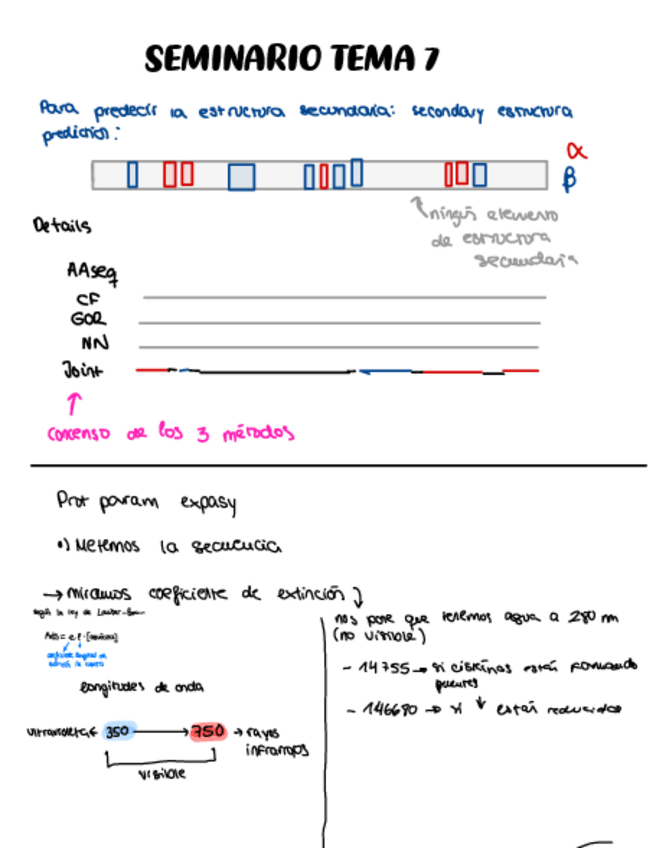 SEMINARIO TEMA 7
Para predecir la estructura secundaria: secondary estructura
prediction:
α
β
ningún elemento
de estructura
secundaria
Details
AAseq
CF
GOR
NN
Joint
Concenso de los 3 métodos
Prot param expasy
•) Metemos la secuencia
→ miramos coeficiente de extinción
según la ley de Lamber-Beer
Abs = ε·l·[ ]
longitudes de onda
ultravioleta ← 350 → 750 → rayos
infrarrojos
visible
nos pone que tenemos agua a 280 nm
(no visible)
- 14755 → si cisteínas están formando
puentes
- 146680 → si ↓ están reducidas